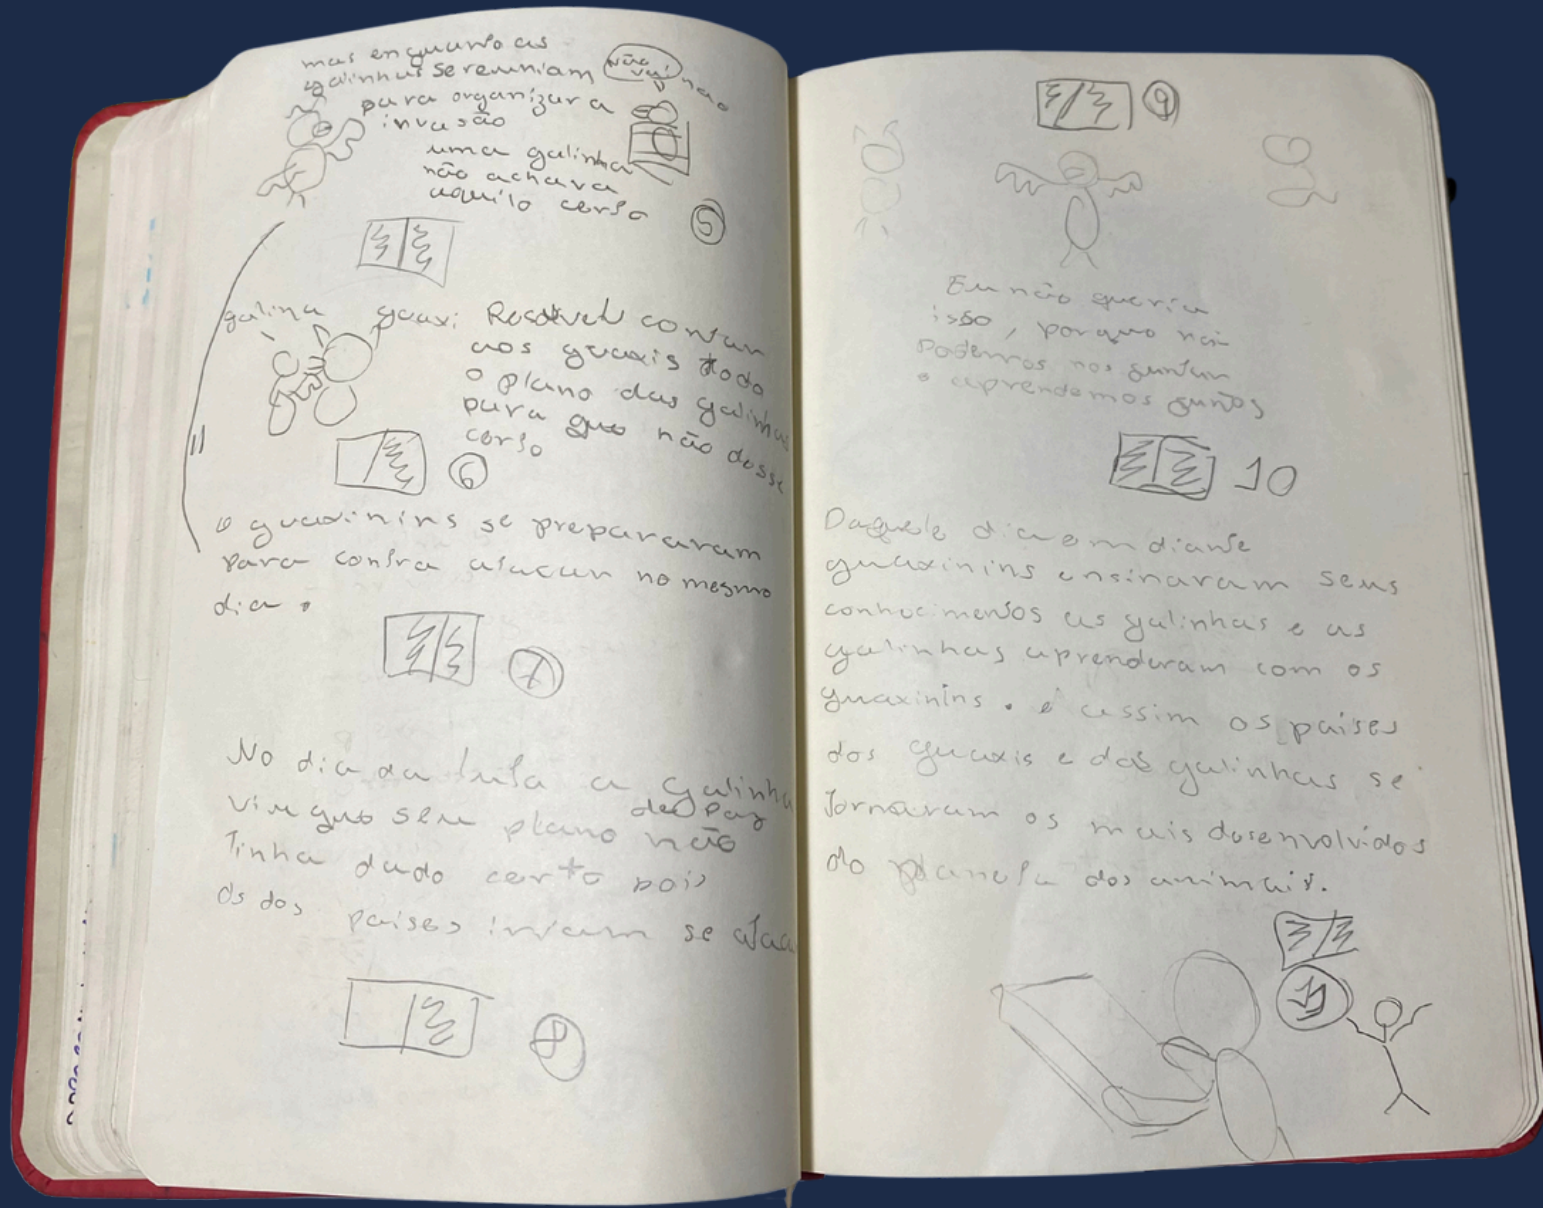 mas enquanto as
galinhas se reuniam
para organizar a
invasão
não
vai
não
uma galinha
não achava
aquilo certo
5
galina guaxi
Resolveu contar
aos guaxis todo
o plano das galinhas
para que não desse
certo
6
o guaxinins se prepararam
para contra atacar no mesmo
dia.
7
No dia da luta a galinha
viu que seu plano de paz não
tinha dado certo pois
os dos países iriam se ataca
8
9
Eu não queria
isso, porque não
podemos nos juntar
e aprendemos juntos
10
Daquele dia em diante
guaxinins ensinaram seus
conhecimentos as galinhas e as
galinhas aprenderam com os
guaxinins. e assim os países
dos guaxis e das galinhas se
tornaram os mais desenvolvidos
do planeta dos animais.
11